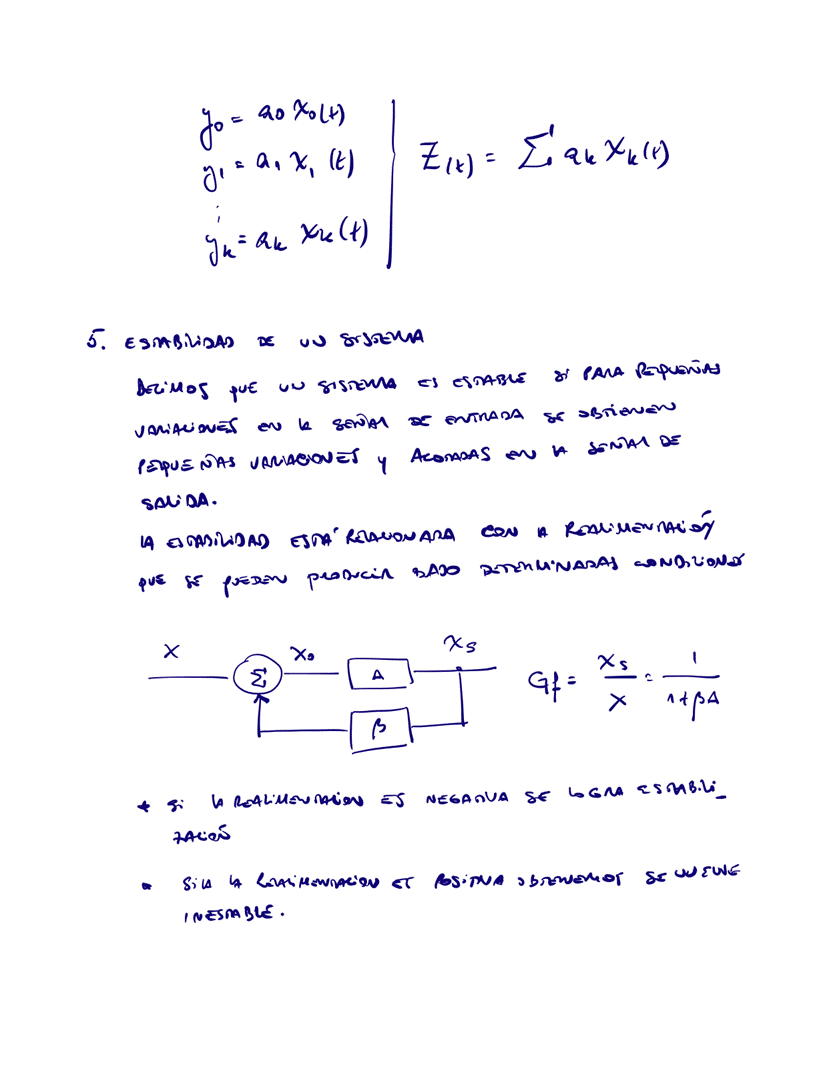 y0 = a0 x0(t)
y1 = a1 x1 (t)
⋮
yk = ak xk (t)
Z(t) = Σ ak Xk(t)
5. ESTABILIDAD DE UN SISTEMA
DECIMOS QUE UN SISTEMA ES ESTABLE SI PARA PEQUEÑAS
VARIACIONES EN LA SEÑAL DE ENTRADA SE OBTIENEN
PEQUEÑAS VARIACIONES Y ACOTADAS EN LA SEÑAL DE
SALIDA.
LA ESTABILIDAD ESTÁ RELACIONADA CON LA REALIMENTACIÓN
QUE SE PUEDEN PRODUCIR BAJO DETERMINADAS CONDICIONES
X
Σ
X0
A
XS
β
Gf = XS / X = 1 / 1+βA
* SI LA REALIMENTACION ES NEGATIVA SE LOGRA ESTABILI_
ZACIÓN
* SI LA LA REALIMENTACION ES POSITIVA OBTENEMOS SE VUELVE
INESTABLE.